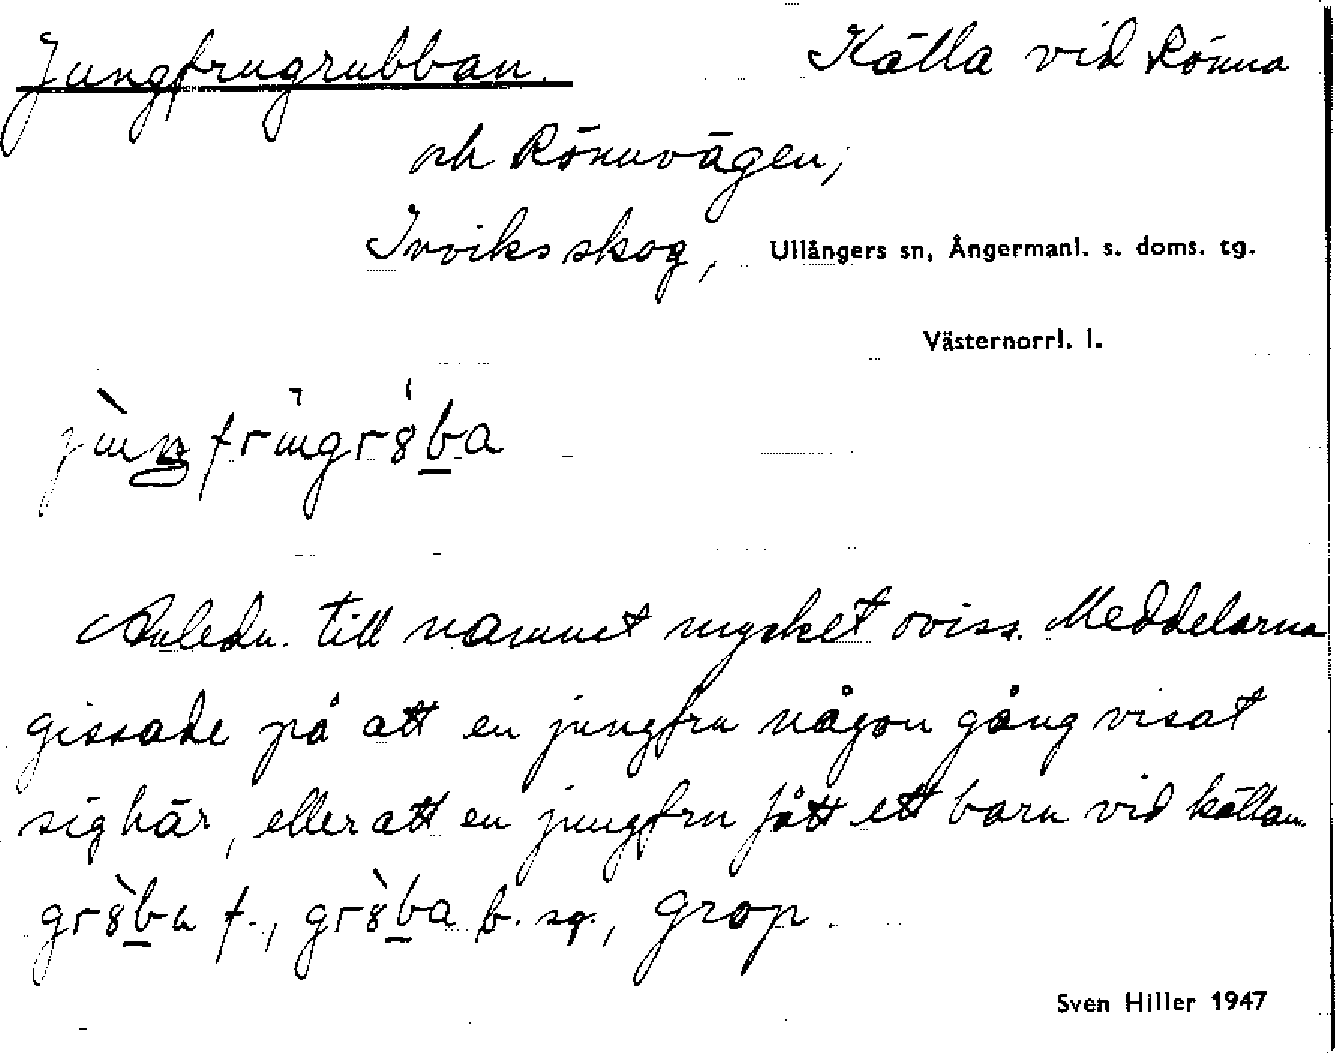 Jungfrugrubban. Källa vid Rönna
och Rönnvägen;
Irviks skog, Ullångers sn, Ångermanl. s. doms. tg.
Västernorrl. l.
Anledn. till namnet mycket oviss. Meddelarna
gissade på att en jungfru någon gång visat
sig här, eller att en jungfru fått ett barn vid källan.
f., b. sg., grop.
Sven Hiller 1947